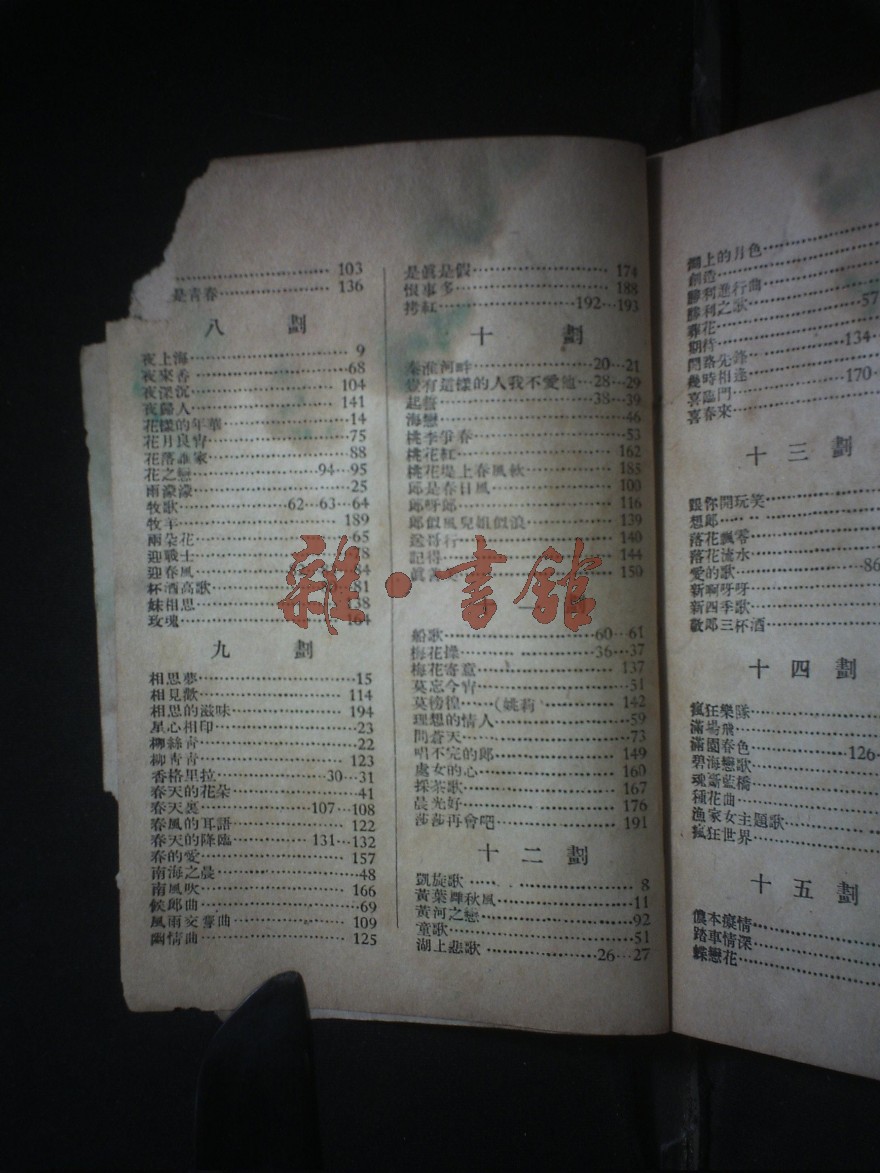 103
是靑春 136
八 劃
夜上海 9
夜來香 68
夜深沉 104
夜歸人 141
花樣的年華 14
花月良宵 75
花落誰家 88
花之戀 94…95
雨濛濛 25
牧歌 62…63…64
牧羊 189
兩朵花 65
迎戰士
迎春風 84
杯酒高歌 81
妹相思 138
玫瑰 164
九 劃
相思夢 15
相見歡 114
相思的滋味 194
星心相印 23
柳絲靑 22
柳靑靑 123
香格里拉 30…31
春天的花朵 41
春天裏 107…108
春風的耳語 122
春天的降臨 131…132
春的愛 157
南海之晨 48
南風吹 166
候郞曲 69
風雨交響曲 109
幽情曲 125
是眞是假 174
恨事多 188
拷紅 192…193
十 劃
秦淮河畔 20…21
沒有這樣的人我不愛他 28…29
起誓 38…39
海戀 46
桃李爭春 53
桃花紅 162
桃花堤上春風軟 185
郞是春日風 100
郞呀郞 116
郞似風兒姐似浪 139
送哥行 140
記得 144
150
十一劃
船歌 60…61
梅花操 36…37
梅花寄意 137
莫忘今宵 51
莫徬徨 (姚莉) 142
理想的情人 59
問蒼天 73
唱不完的郞 149
處女的心 160
採茶歌 167
晨光好 176
莎莎再會吧 191
十二劃
凱旋歌 8
黃葉舞秋風 11
黃河之戀 92
童歌 51
湖上悲歌 26…27
湖上的月色
創造
勝利進行曲
勝利之歌 57
春花
期待 134
開路先鋒
幾時相逢 170
喜臨門
喜春來
十三劃
跟你開玩笑
想郞
落花飄零
落花流水
愛的歌 86
新啊呀呀
新四季歌
敬郞三杯酒
十四劃
瘋狂樂隊
滿場飛
滿園春色 126
碧海戀歌
魂斷藍橋
種花曲
漁家女主題歌
瘋狂世界
十五劃
儂本癡情
踏車情深
蝶戀花
雜·書館